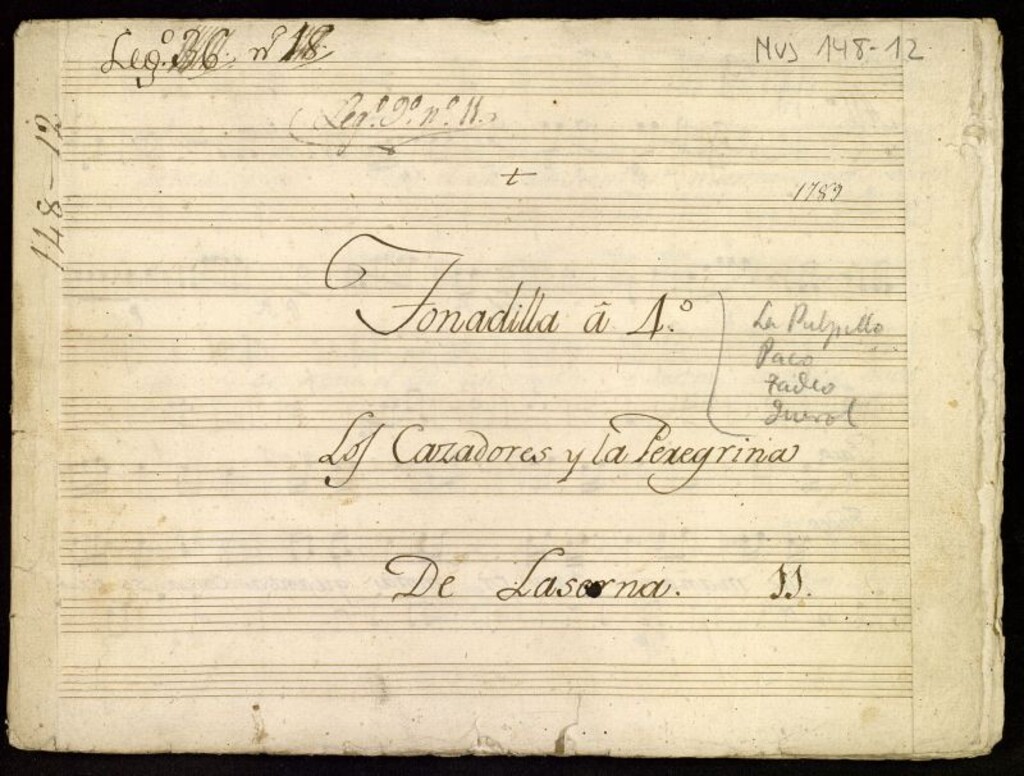 Leg.º 36. nº 18.
MUS 148-12
Leg.º 9º nº 11.
148-12
t
1789
Tonadilla â 4.º
La Pulpillo
Paco
Tadeo
Querol
Los Cazadores y la Peregrina
De Laserna. 11.